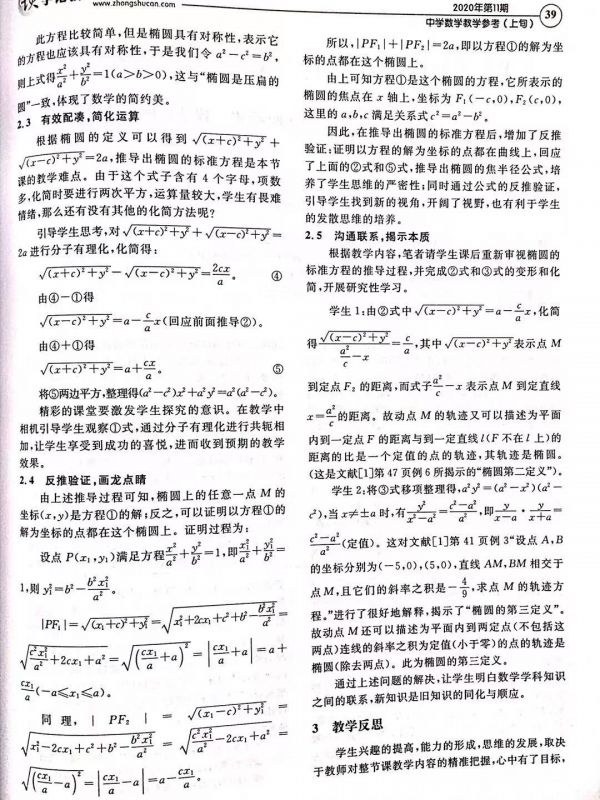 www.zhongshucan.com
2020年第11期
中学数学教学参考(上旬)
39
此方程比较简单,但是椭圆具有对称性,表示它
的方程也应该具有对称性,于是我们令 a²-c²=b²,
则上式得 x²/a²+y²/b²=1(a>b>0),这与“椭圆是压扁的
圆”一致,体现了数学的简约美。
2.3 有效配凑,简化运算
根据椭圆的定义可以得到 √((x+c)²+y²)+
√((x-c)²+y²)=2a,推导出椭圆的标准方程是本节
课的教学难点。由于这个式子含有 4 个字母,项数
多,化简时要进行两次平方,运算量较大,学生有畏难
情绪,那么还有没有其他的化简方法呢?
引导学生思考,对√((x+c)²+y²)+√((x-c)²+y²)=
2a 进行分子有理化,化简得:
√((x+c)²+y²)-√((x-c)²+y²)=2cx/a. ④
由④-①得
√((x-c)²+y²)=a-c/a x(回应前面推导②)。
由④+①得
√((x+c)²+y²)=a+cx/a. ⑤
将⑤两边平方,整理得(a²-c²)x²+a²y²=a²(a²-c²)。
精彩的课堂要激发学生探究的意识。在教学中
相机引导学生观察①式,通过分子有理化进行共轭相
加,让学生享受到成功的喜悦,进而收到预期的教学
效果。
2.4 反推验证,画龙点睛
由上述推导过程可知,椭圆上的任意一点 M 的
坐标(x,y)是方程①的解;反之,可以证明以方程①的
解为坐标的点都在这个椭圆上。证明过程为:
设点 P(x₁,y₁)满足方程 x²/a²+y²/b²=1,即 x₁²/a²+y₁²/b²=
1,则 y₁²=b²-b²x₁²/a².
|PF₁|=√((x₁+c)²+y₁²)=√(x₁²+2cx₁+c²+b²-b²x₁²/a²)=
√(c²x₁²/a²+2cx₁+a²)=√((cx₁/a+a)²)=|cx₁/a+a|=a+
cx₁/a(-a≤x₁≤a)。
同理,|PF₂|=√((x₁-c)²+y₁²)=
√(x₁²-2cx₁+c²+b²-b²x₁²/a²)=√(c²x₁²/a²-2cx₁+a²)=
√((cx₁/a-a)²)=|cx₁/a-a|=a-cx₁/a。
所以,|PF₁|+|PF₂|=2a,即以方程①的解为坐
标的点都在这个椭圆上。
由上可知方程①是这个椭圆的方程,它所表示的
椭圆的焦点在 x 轴上,坐标为 F₁(-c,0),F₂(c,0),
这里的 a,b,c 满足关系式 c²=a²-b²。
因此,在推导出椭圆的标准方程后,增加了反推
验证:证明以方程的解为坐标的点都在曲线上,回应
了上面的②式和⑤式,推导出椭圆的焦半径公式,培
养了学生思维的严密性;同时通过公式的反推验证,
引导学生找到新的视角,开阔了视野,也有利于学生
的发散思维的培养。
2.5 沟通联系,揭示本质
根据教学内容,笔者请学生课后重新审视椭圆的
标准方程的推导过程,并完成②式和③式的变形和化
简,开展研究性学习。
学生 1:由②式中 √((x-c)²+y²)=a-c/a x,化简
得 √((x-c)²+y²)/(a²/c-x)=c/a,其中√((x-c)²+y²)表示点 M
到定点 F₂ 的距离,而式子 a²/c-x 表示点 M 到定直线
x=a²/c 的距离。故动点 M 的轨迹又可以描述为平面
内到一定点 F 的距离与到一定直线 l(F 不在 l 上)的
距离的比是一个定值的点的轨迹,其轨迹是椭圆。
(这是文献[1]第 47 页例 6 所揭示的“椭圆第二定义”)。
学生 2:将③式移项整理得,a²y²=(a²-x²)(a²-
c²),当 x≠±a 时,有 y²/(x²-a²)=(c²-a²)/a²,即 y/(x-a)·y/(x+a)=
(c²-a²)/a²(定值)。这对文献[1]第 41 页例 3“设点 A,B
的坐标分别为(-5,0),(5,0),直线 AM,BM 相交于
点 M,且它们的斜率之积是-4/9,求点 M 的轨迹方
程。”进行了很好地解释,揭示了“椭圆的第三定义”。
故动点 M 还可以描述为平面内到两定点(不包括这
两点)连线的斜率之积为定值(小于零)的点的轨迹是
椭圆(除去两点)。此为椭圆的第三定义。
通过上述问题的解决,让学生明白数学学科知识
之间的联系,新知识是旧知识的同化与顺应。
3 教学反思
学生兴趣的提高,能力的形成,思维的发展,取决
于教师对整节课教学内容的精准把握,心中有了目标,